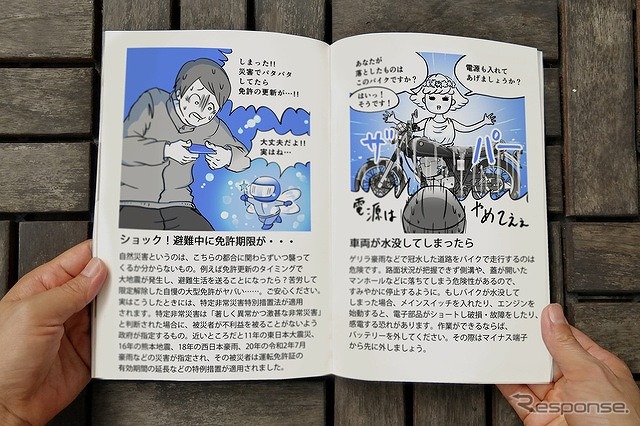 しまった!!
災害でバタバタ
してたら
免許の更新が…!!
大丈夫だよ!!
実はね…
ショック!避難中に免許期限が・・・
自然災害というのは、こちらの都合に関わらずいつ襲って
くるか分からないもの。例えば免許更新のタイミングで
大地震が発生し、避難生活を送ることになったら?苦労して
限定解除した自慢の大型免許がヤバい……。ご安心ください。
実はこうしたときには、特定非常災害特別措置法が適用
されます。特定非常災害は「著しく異常かつ激甚な非常災害」
と判断された場合に、被災者が不利益を被ることがないよう
政府が指定するもの、近いところだと11年の東日本大震災、
16年の熊本地震、18年の西日本豪雨、20年の令和2年7月
豪雨などの災害が指定され、その被災者は運転免許証の
有効期間の延長などの特例措置が適用されました。
あなたが
落としたものは
このバイクですか?
電源も入れて
あげましょうか?
はいっ!
そうです!
ザ
パー
電源は
やめてえぇ
車両が水没してしまったら
ゲリラ豪雨などで冠水した道路をバイクで走行するのは
危険です。路面状況が把握できず側溝や、蓋が開いた
マンホールなどに落ちてしまう危険性があるので、
すみやかに停止するように。もしバイクが水没して
しまった場合、メインスイッチを入れたり、エンジンを
始動すると、電子部品がショートし破損・故障をしたり、
感電する恐れがあります。作業ができるならば、
バッテリーを外してください。その際はマイナス端子
から先に外しましょう。
Response.